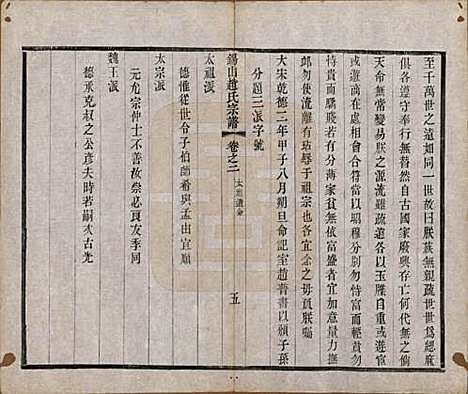 至千萬世之遠如同一世故曰朕族無親疏世世爲緦麻
俱各遵守奉行無替然自古國家廢興存亡何代無之倘
天命無常變易朕之源流雖疏遠各以玉牒自重或遊宦
或遊商在處相會合符當以昭穆分别勿恃富而輕貧勿
恃貴而驕賤若有分蒔家貧無依富盛者宜加量力扶持
郎勿使流離有玷辱于祖宗也各宜念之毋負朕囑
大宋乾德二年甲子八月朔旦命記室趙普書以頒子孫
分題三派字號
錫山趙氏宗譜 卷之二 太祖遺命 五
太祖派
德惟從世令子伯師希與孟由宜順
太宗派
元允宗仲士不善故崇必良友季同
魏王派
德承克叔之公彥夫時若嗣次古光